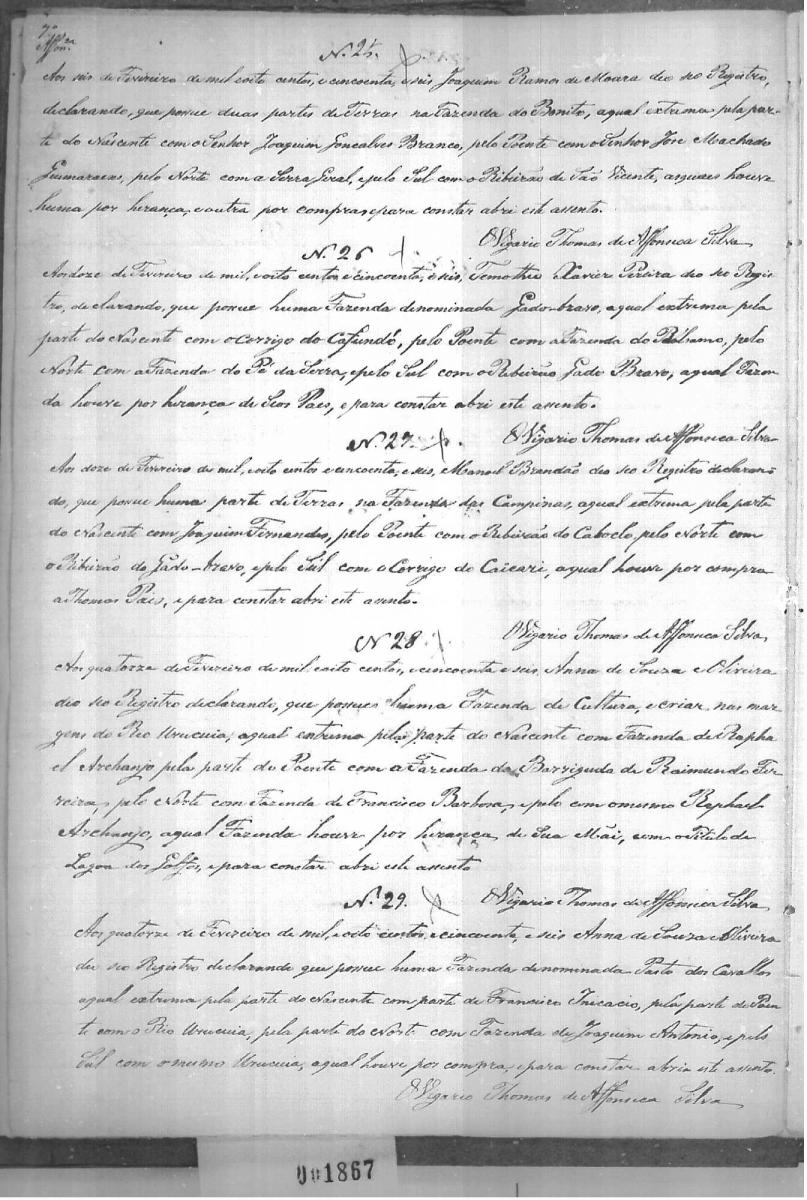 N. 25.
Aos seis de Fevereiro de mil, oito centos, e cincoenta, e seis Joaquim Ramos de Moura deo seo Registro,
declarando, que possue duas partes de Terras na Fazenda do Bonito, aqual extrema pela par-
te do Nascente com o Senhor Joaquim Goncalves Branco, pelo Poente com o Senhor Jose Machado
Guimaraens, pelo Norte com a Serra Geral, e pelo Sul com o Ribeirão de São Vicente, as quaes houve
huma por herança, e outra por compra, e para constar abri este assento.
O Vigario Thomas de Affonseca Silva
N. 26
Aos doze de Fevereiro de mil, oito centos e cincoenta, e seis, Timotheo Xavier Pereira deo seo Regis-
tro, declarando, que possue huma Fazenda denominada Gado-bravo, aqual extrema pela
parte do Nascente com o Corrigo do Cafundó, pelo Poente com a Fazenda do , pelo
Norte com a Fazenda do Pé da Serra, e pelo Sul com o Ribeirão Gado Bravo, aqual Fazen-
da houve por herança de Seos Paes, e para constar abri este assento.
O Vigario Thomas de Affonseca Silva
N. 27.
Aos doze de Fevereiro de mil, oito centos e cincoenta, e seis, Manoel Brandão deo seo Registro declaran-
do, que possue huma parte de Terras na Fazenda das Campinas, aqual extrema pela parte
do Nascente com Joaquim Fernandes, pelo Poente com o Ribeirão do Caboclo, pelo Norte com
o Ribeirão do Gado-bravo, e pelo Sul com o Corrigo do Caicari, aqual houve por compra
a Thomas Paes, e para constar abri este assento.
O Vigario Thomas de Affonseca Silva
N 28
Aos quatorze de Fevereiro de mil, oito cento, e cincoenta e seis, Anna de Souza e Oliveira
deo seo Registro declarando, que possues huma Fazenda de Cultura, e criar, nas mar-
gens do Rio Urucuia, aqual extrema pela parte do Nascente com Fazenda de Rapha
el Archanjo pela parte do Poente com a Fazenda da Barriguda de Raimundo Fer-
reira, pelo Norte com Fazenda de Francisco Barbosa, e pelo com o mesmo Raphael
Archanjo, aqual Fazenda houve por herança de Sua Mãi, com o Titulo de
Lagoa dos , e para constar abri este assento
O Vigario Thomas de Affonseca Silva
N. 29.
Aos quatorze de Fevereiro de mil, e oito centos, e cincoenta, e seis Anna de Souza e Oliveira
deu seo Registro declarando que possue huma Fazenda denominada Pasto dos Cavallos
aqual extrema pela parte do Nascente com parte de Francisco Inacacio, pela parte do Poen-
te com o Rio Urucuia, pela parte do Norte com Fazenda de Joaquim Antonio, e pelo
Sul com o mesmo Urucuia, aqual houve por compra, e para constar abria este assento.
O Vigario Thomas de Affonseca Silva
001867